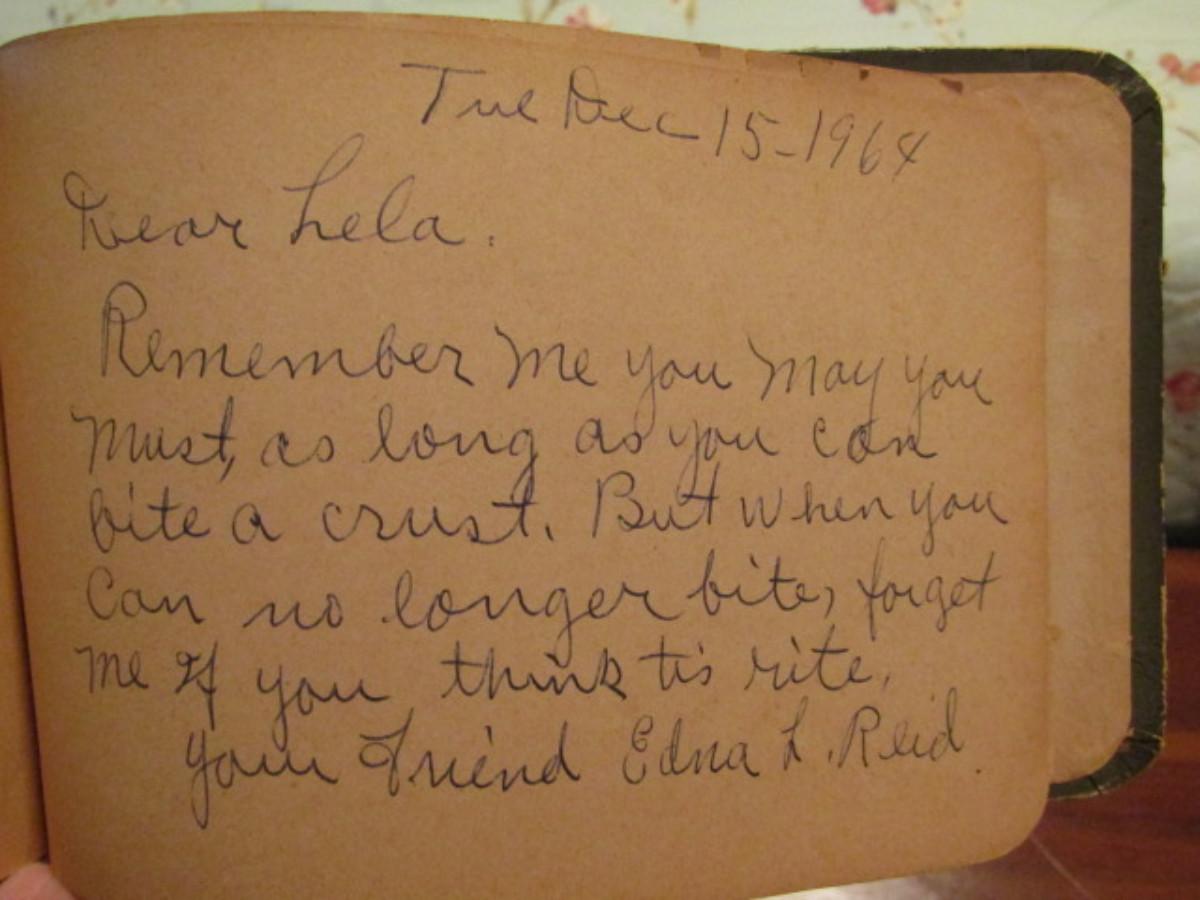 Tue Dec 15-1964
Dear Lela.
Remember me you may you
must, as long as you can
bite a crust. But when you
can no longer bite, forget
me If you think tis rite.
your Friend Edna L. Reid.